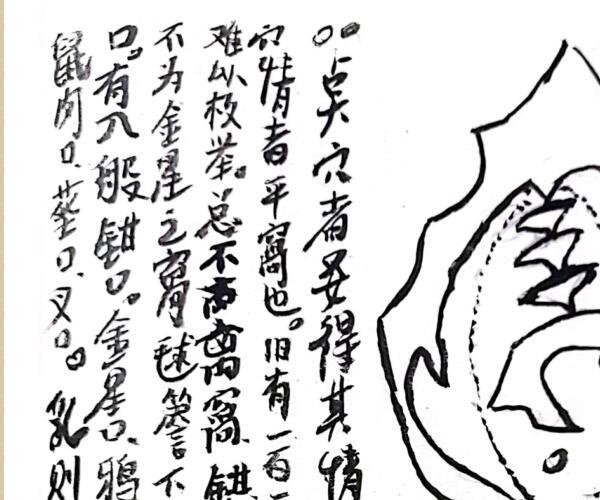 点穴者要得其情
穴情者平窩也。旧有一百
难以枚举。总不离窩
不为金星之窩毬簷下
口。有八般钳口。金星口、鸦
鼠肉口、茎口、叉口。乳则